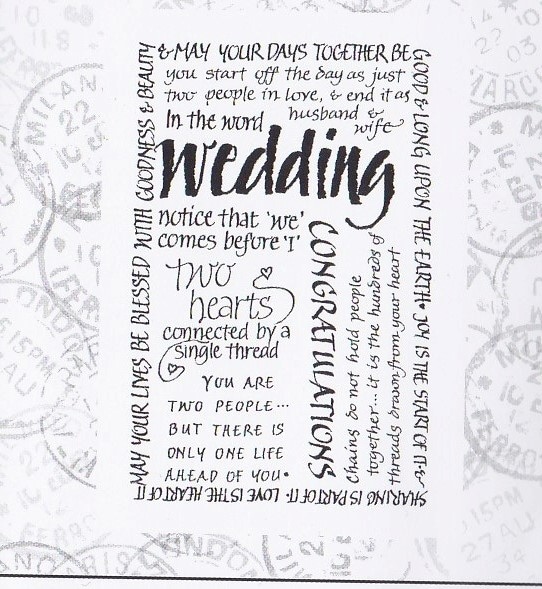 MAY YOUR LIVES BE BLESSED WITH GOODNESS & BEAUTY
& MAY YOUR DAYS TOGETHER BE
GOOD & LONG UPON THE EARTH• JOY IS THE START OF IT &
SHARING IS PART OF IT• LOVE IS THE HEART OF IT
you start off the day as just
two people in love, & end it as
husband &
wife
In the word
wedding
notice that 'we'
comes before 'I'
two
hearts
connected by a
single thread
YOU ARE
TWO PEOPLE...
BUT THERE IS
ONLY ONE LIFE
AHEAD OF YOU•
CONGRATULATIONS
Chains do not hold people
together... it is the hundreds of
threads drawn from your heart
MILAN
22
15PM
27 AU
34